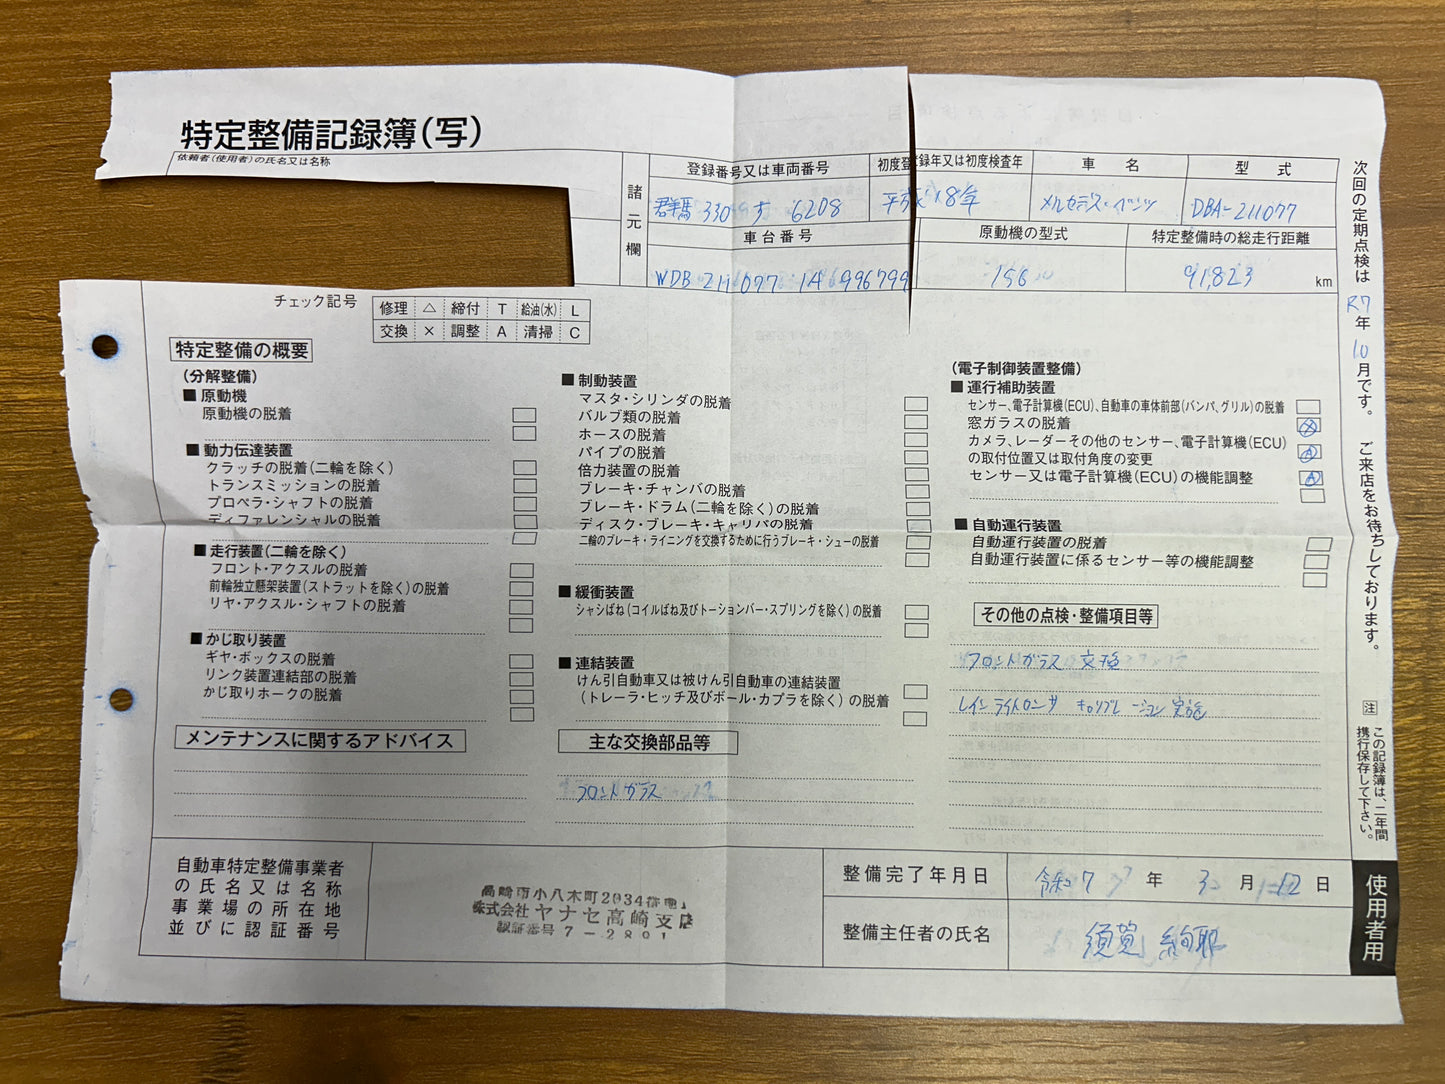 特定整備記録簿(写)
依頼者(使用者)の氏名又は名称
諸元欄
登録番号又は車両番号
初度登録年又は初度検査年
車名
型式
群馬 330 す 6208
平成 18年
メルセデス・ベンツ
DBA-211077
車台番号
原動機の型式
特定整備時の総走行距離
WDB 211077 1A 996799
156
91,823 km
チェック記号
修理 △ 締付 T 給油(水) L
交換 × 調整 A 清掃 C
特定整備の概要
(分解整備)
■ 原動機
原動機の脱着
■ 動力伝達装置
クラッチの脱着(二輪を除く)
トランスミッションの脱着
プロペラ・シャフトの脱着
ディファレンシャルの脱着
■ 走行装置(二輪を除く)
フロント・アクスルの脱着
前輪独立懸架装置(ストラットを除く)の脱着
リヤ・アクスル・シャフトの脱着
■ かじ取り装置
ギヤ・ボックスの脱着
リンク装置連結部の脱着
かじ取りホークの脱着
■ 制動装置
マスタ・シリンダの脱着
バルブ類の脱着
ホースの脱着
パイプの脱着
倍力装置の脱着
ブレーキ・チャンバの脱着
ブレーキ・ドラム(二輪を除く)の脱着
ディスク・ブレーキ・キャリパの脱着
二輪のブレーキ・ライニングを交換するために行うブレーキ・シューの脱着
■ 緩衝装置
シャシばね(コイルばね及びトーションバー・スプリングを除く)の脱着
■ 連結装置
けん引自動車又は被けん引自動車の連結装置
(トレーラ・ヒッチ及びボール・カプラを除く)の脱着
(電子制御装置整備)
■ 運行補助装置
センサー、電子計算機(ECU)、自動車の車体前部(バンパ、グリル)の脱着
窓ガラスの脱着 ×
カメラ、レーダーその他のセンサー、電子計算機(ECU)
の取付位置又は取付角度の変更 A
センサー又は電子計算機(ECU)の機能調整 A
■ 自動運行装置
自動運行装置の脱着
自動運行装置に係るセンサー等の機能調整
その他の点検・整備項目等
フロントガラス 交換
レインライトセンサ キャリブレーション 実施
メンテナンスに関するアドバイス
主な交換部品等
フロントガラス
自動車特定整備事業者
の氏名又は名称
事業場の所在地
並びに認証番号
高崎市小八木町2034番地
株式会社ヤナセ高崎支店
認証番号 7-2891
整備完了年月日
令和7年 3月 12日
整備主任者の氏名
須賀
次回の定期点検は R7年 10月です。 ご来店をお待ちしております。
注 この記録簿は、二年間
携行保存して下さい。
使用者用